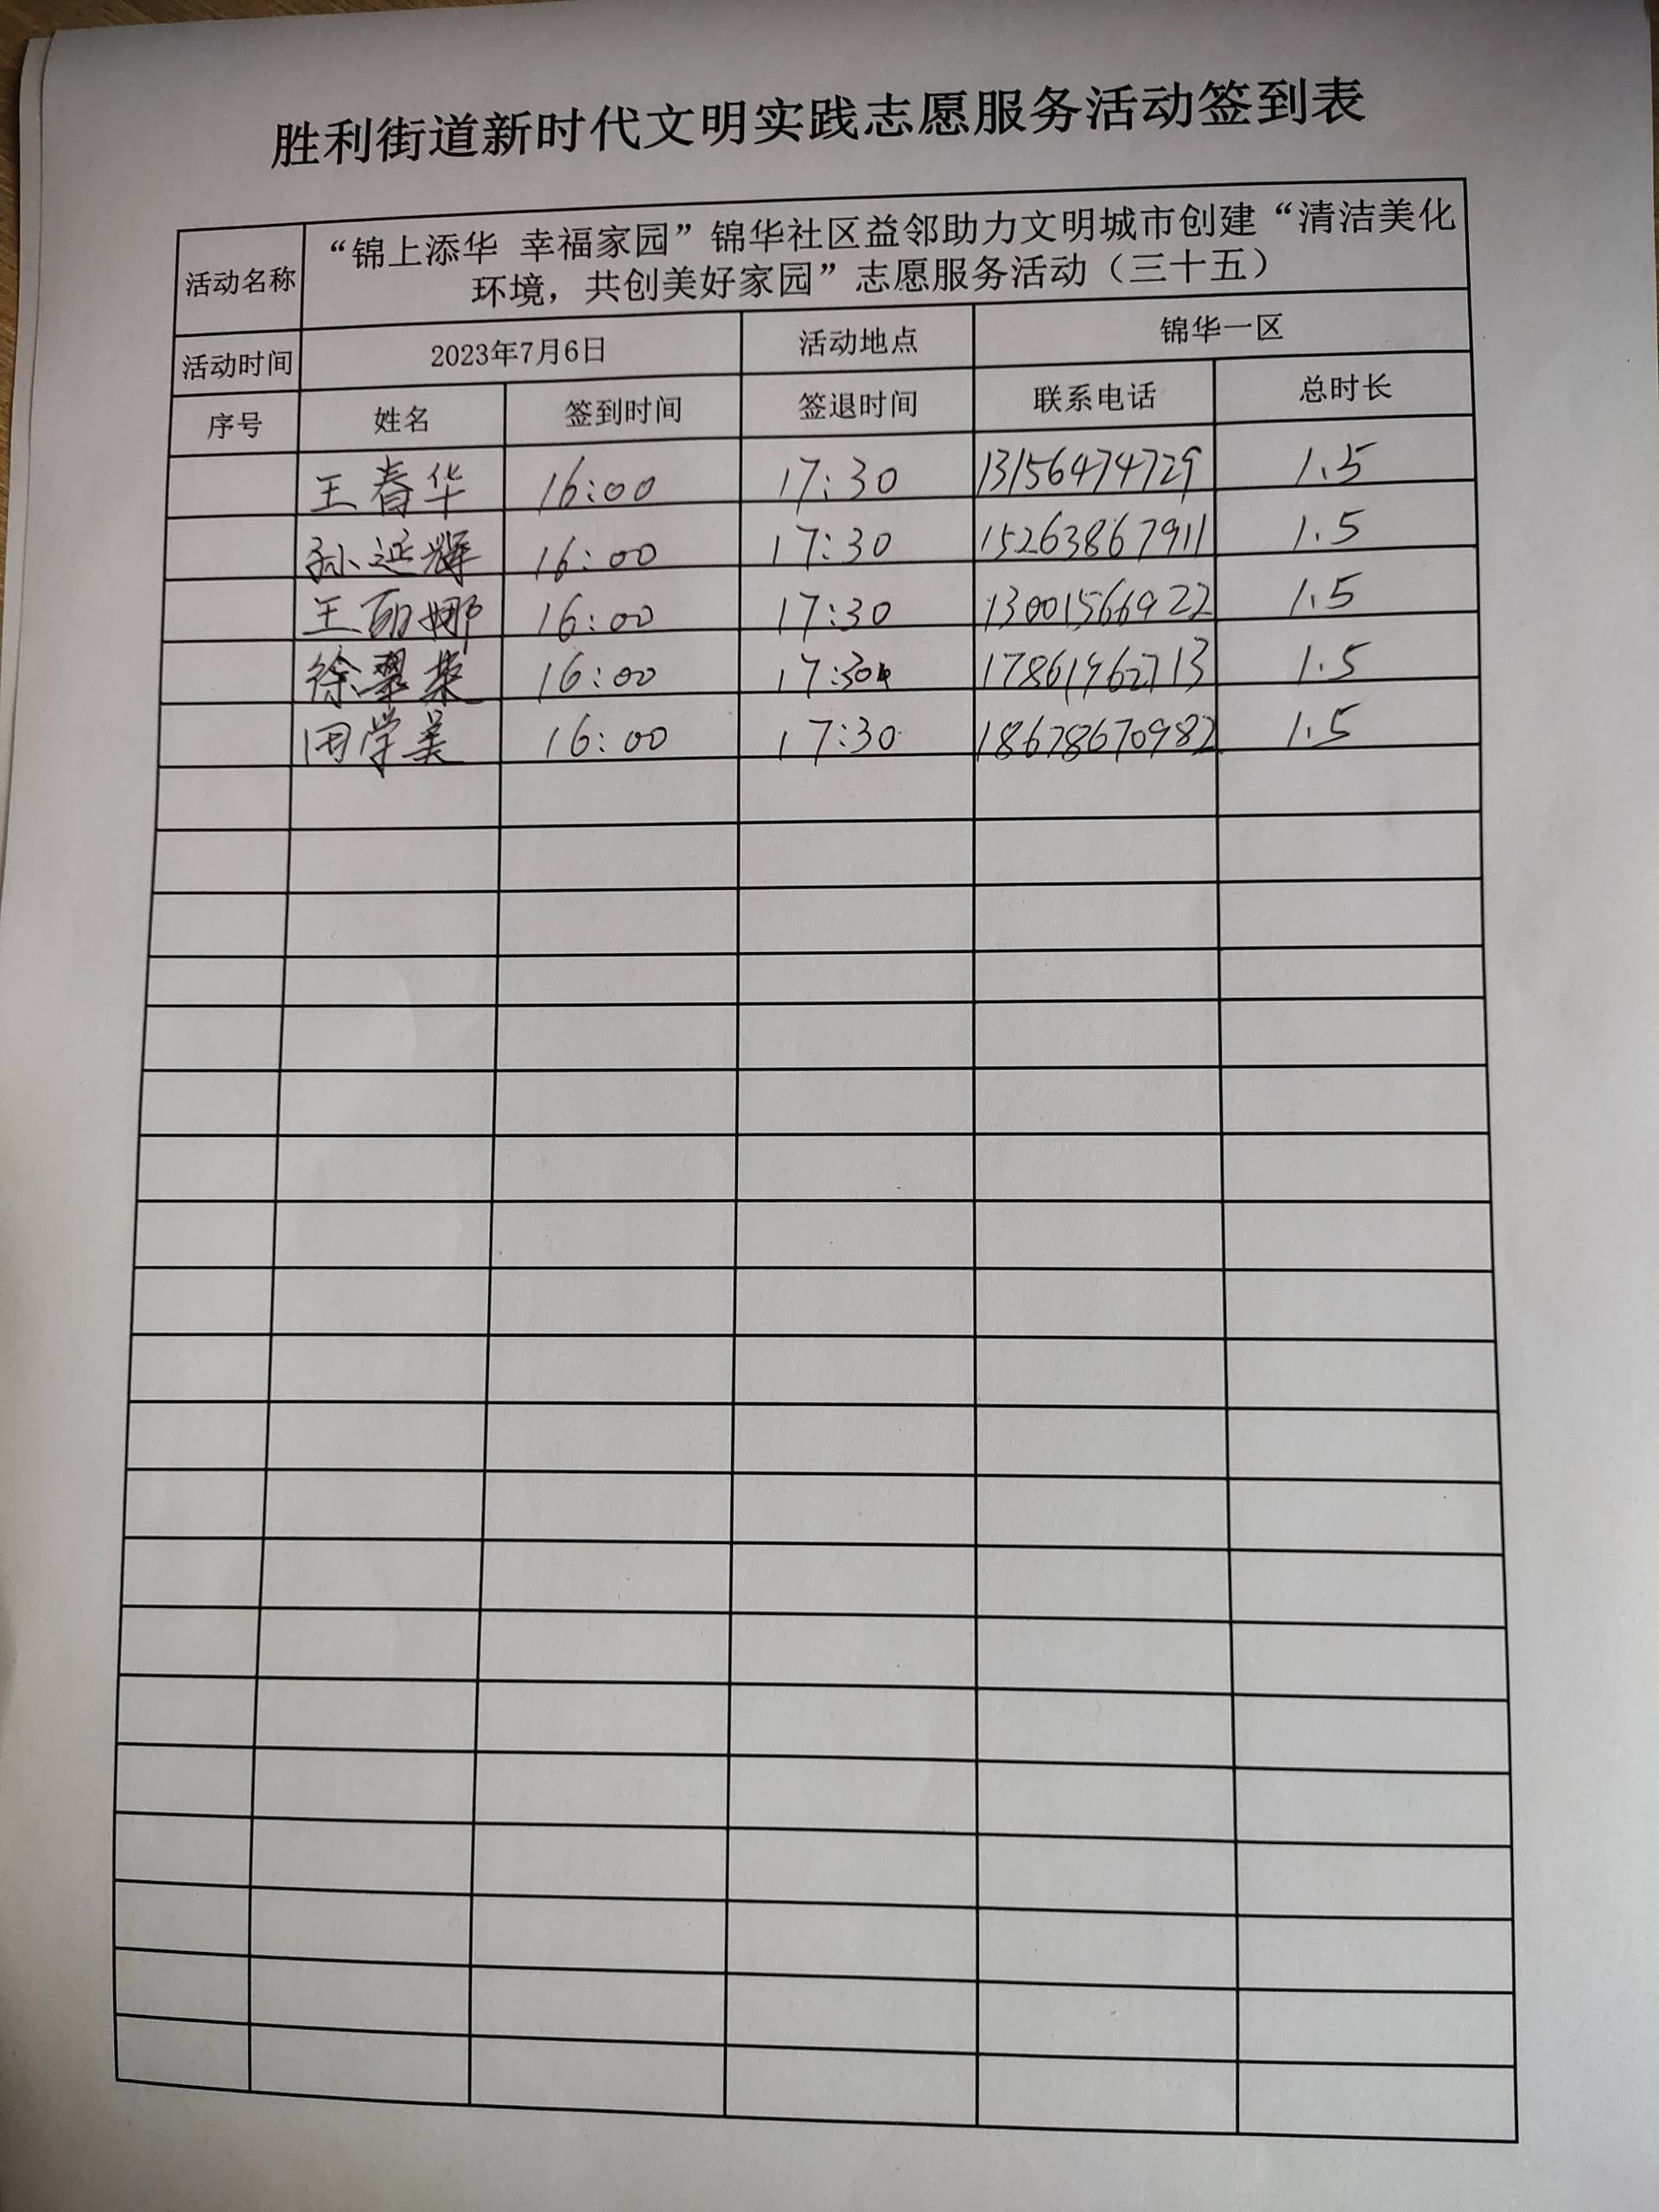 胜利街道新时代文明实践志愿服务活动签到表
活动名称 “锦上添华 幸福家园”锦华社区益邻助力文明城市创建“清洁美化
环境，共创美好家园”志愿服务活动（三十五）
活动时间 2023年7月6日 活动地点 锦华一区
序号 姓名 签到时间 签退时间 联系电话 总时长
王春华 16:00 17:30 13156474729 1.5
孙延辉 16:00 17:30 15263867911 1.5
王 娜 16:00 17:30 13001566922 1.5
徐翠 16:00 17:30 17861962713 1.5
田学美 16:00 17:30 18678670982 1.5